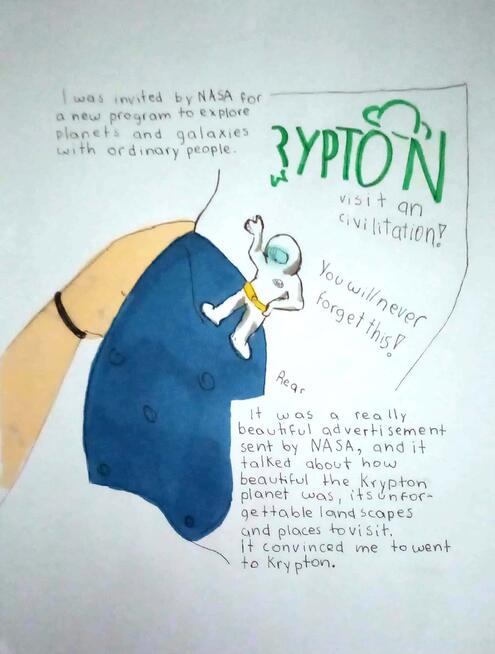 I was invited by NASA for
a new program to explore
planets and galaxies
with ordinary people.
RYPTON
visit an
civilitation!
You will never
forget this!
Rear
It was a really
beautiful advertisement
sent by NASA, and it
talked about how
beautiful the Krypton
planet was, its unfor-
gettable landscapes
and places to visit.
It convinced me to went
to Krypton.